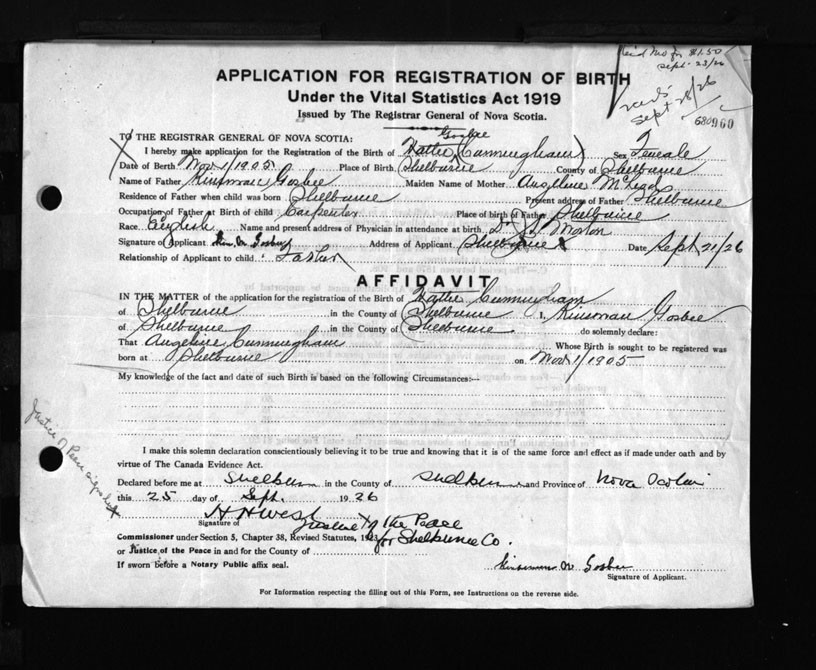 Paid Mo for $1.50
Sept. 23/26
APPLICATION FOR REGISTRATION OF BIRTH
Under the Vital Statistics Act 1919
Issued by The Registrar General of Nova Scotia.
Sept 28/26
680960
TO THE REGISTRAR GENERAL OF NOVA SCOTIA:
Gosbee
I hereby make application for the Registration of the Birth of Hattie (Cunningham) Sex Female
Date of Berth Nov 1/1905 Place of Birth Shelburne County of Shelburne
Name of Father Kinsman Gosbee Maiden Name of Mother Angeline McLeod
Residence of Father when child was born Shelburne Present address of Father Shelburne
Occupation of Father at Birth of child Carpenter Place of birth of Father Shelburne
Race. English Name and present address of Physician in attendance at birth. Dr. Morton
Signature of Applicant Address of Applicant Shelburne Date Sept 21/26
Relationship of Applicant to child. Father
AFFIDAVIT
IN THE MATTER of the application for the registration of the Birth of Hattie Cunningham
of Shelburne in the County of Shelburne I, Kinsman Gosbee
of Shelburne in the County of Shelburne do solemnly declare:
That Angeline Cunningham Whose Birth is sought to be registered was
born at Shelburne on Nov 1/1905
My knowledge of the fact and date of such Birth is based on the following Circumstances:—
Justice of Peace
I make this solemn declaration conscientiously believing it to be true and knowing that it is of the same force and effect as if made under oath and by
virtue of The Canada Evidence Act.
Declared before me at Shelburne in the County of Shelburne and Province of Nova Scotia
this 25 day of Sept. 1926
H H West
Signature of Justice of the Peace
Commissioner under Section 5, Chapter 38, Revised Statutes, 1923 for Shelburne Co.
or Justice of the Peace in and for the County of
If sworn before a Notary Public affix seal.
Kinsman W Gosbee
Signature of Applicant.
For Information respecting the filling out of this Form, see Instructions on the reverse side.